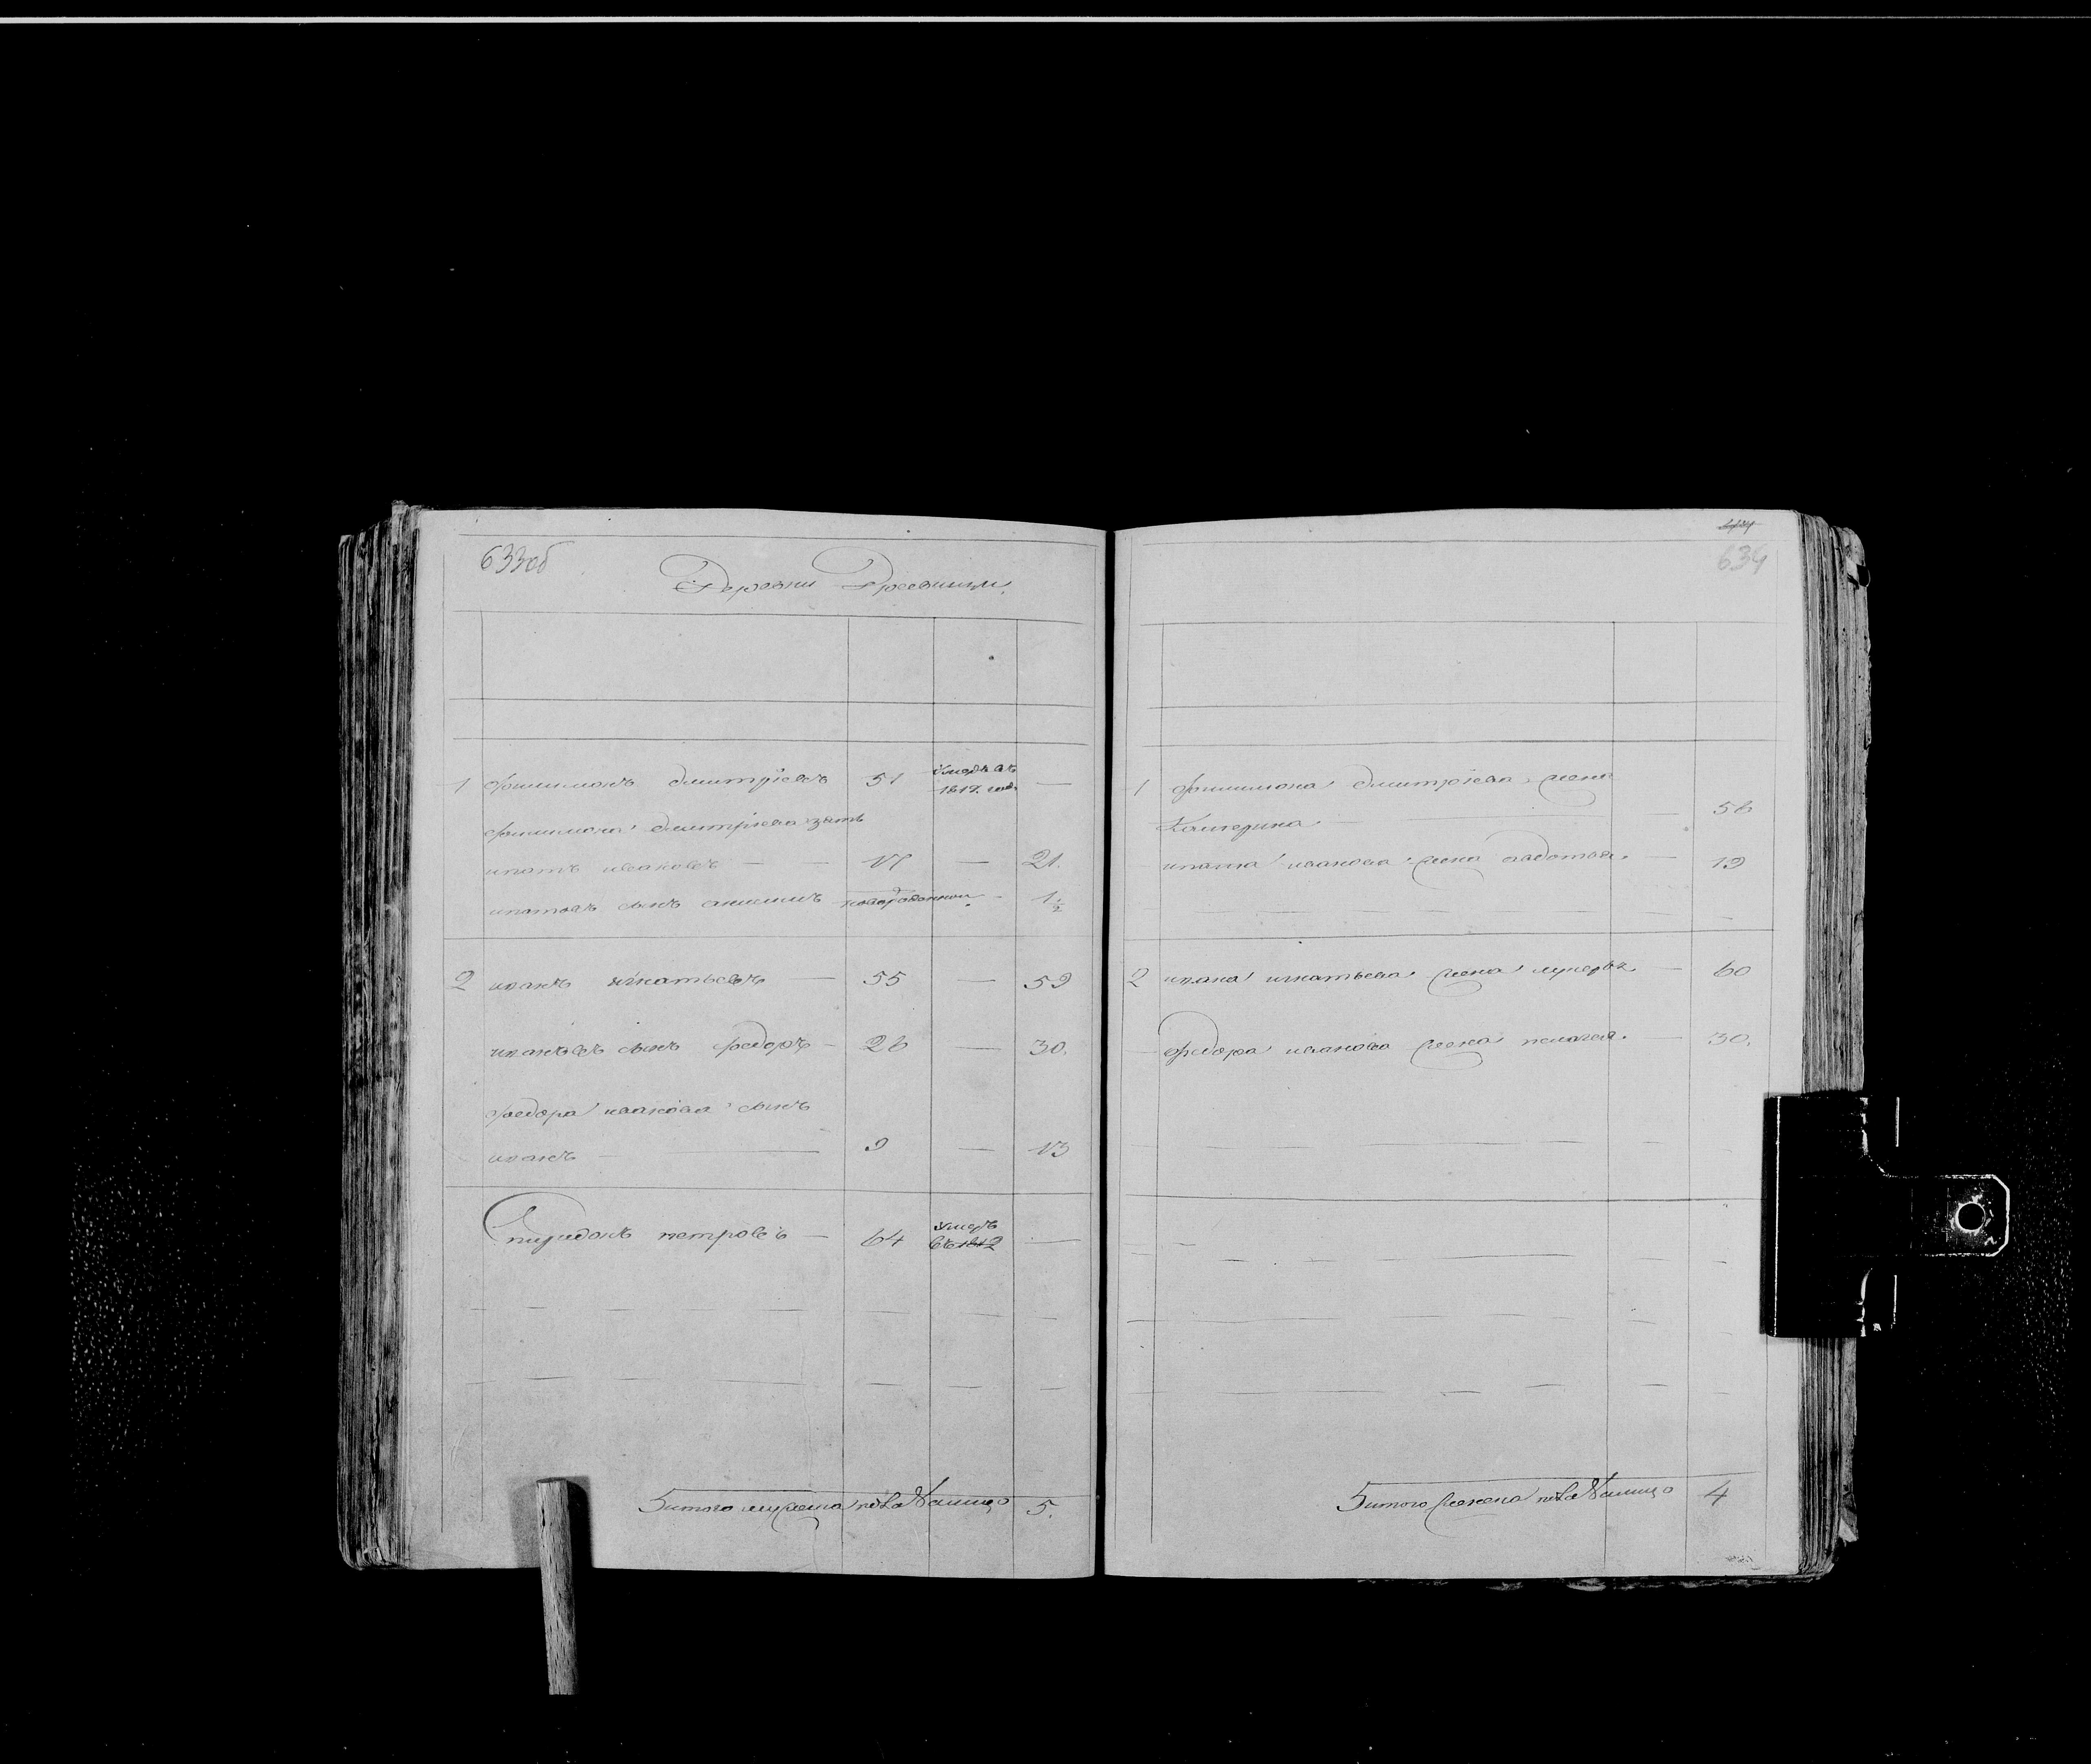 633об
Деревни
1 филимонъ дмитрiевъ 51 умеръ въ 1812. годе —
филимона дмитрiева зять
ипатъ ивановъ — — 17 — 21.
ипатовъ сынъ анисимъ новорожденный — 1 1/2
2 иванъ игнатьевъ — 55 — 59
ивановъ сынъ федоръ — 26 — 30.
федора иванова сынъ
иванъ — 9 — 13
Спиридонъ петровъ — 64 умеръ въ 1812 —
итого мужеска пола налицо 5.
634
1 филимона дмитрiева жена
Катерина — 56
ипата иванова жена федотья. — 19
2 ивана игнатьева жена лукерья — 60
федора иванова жена пелагея. — 30.
итого женска пола налицо 4